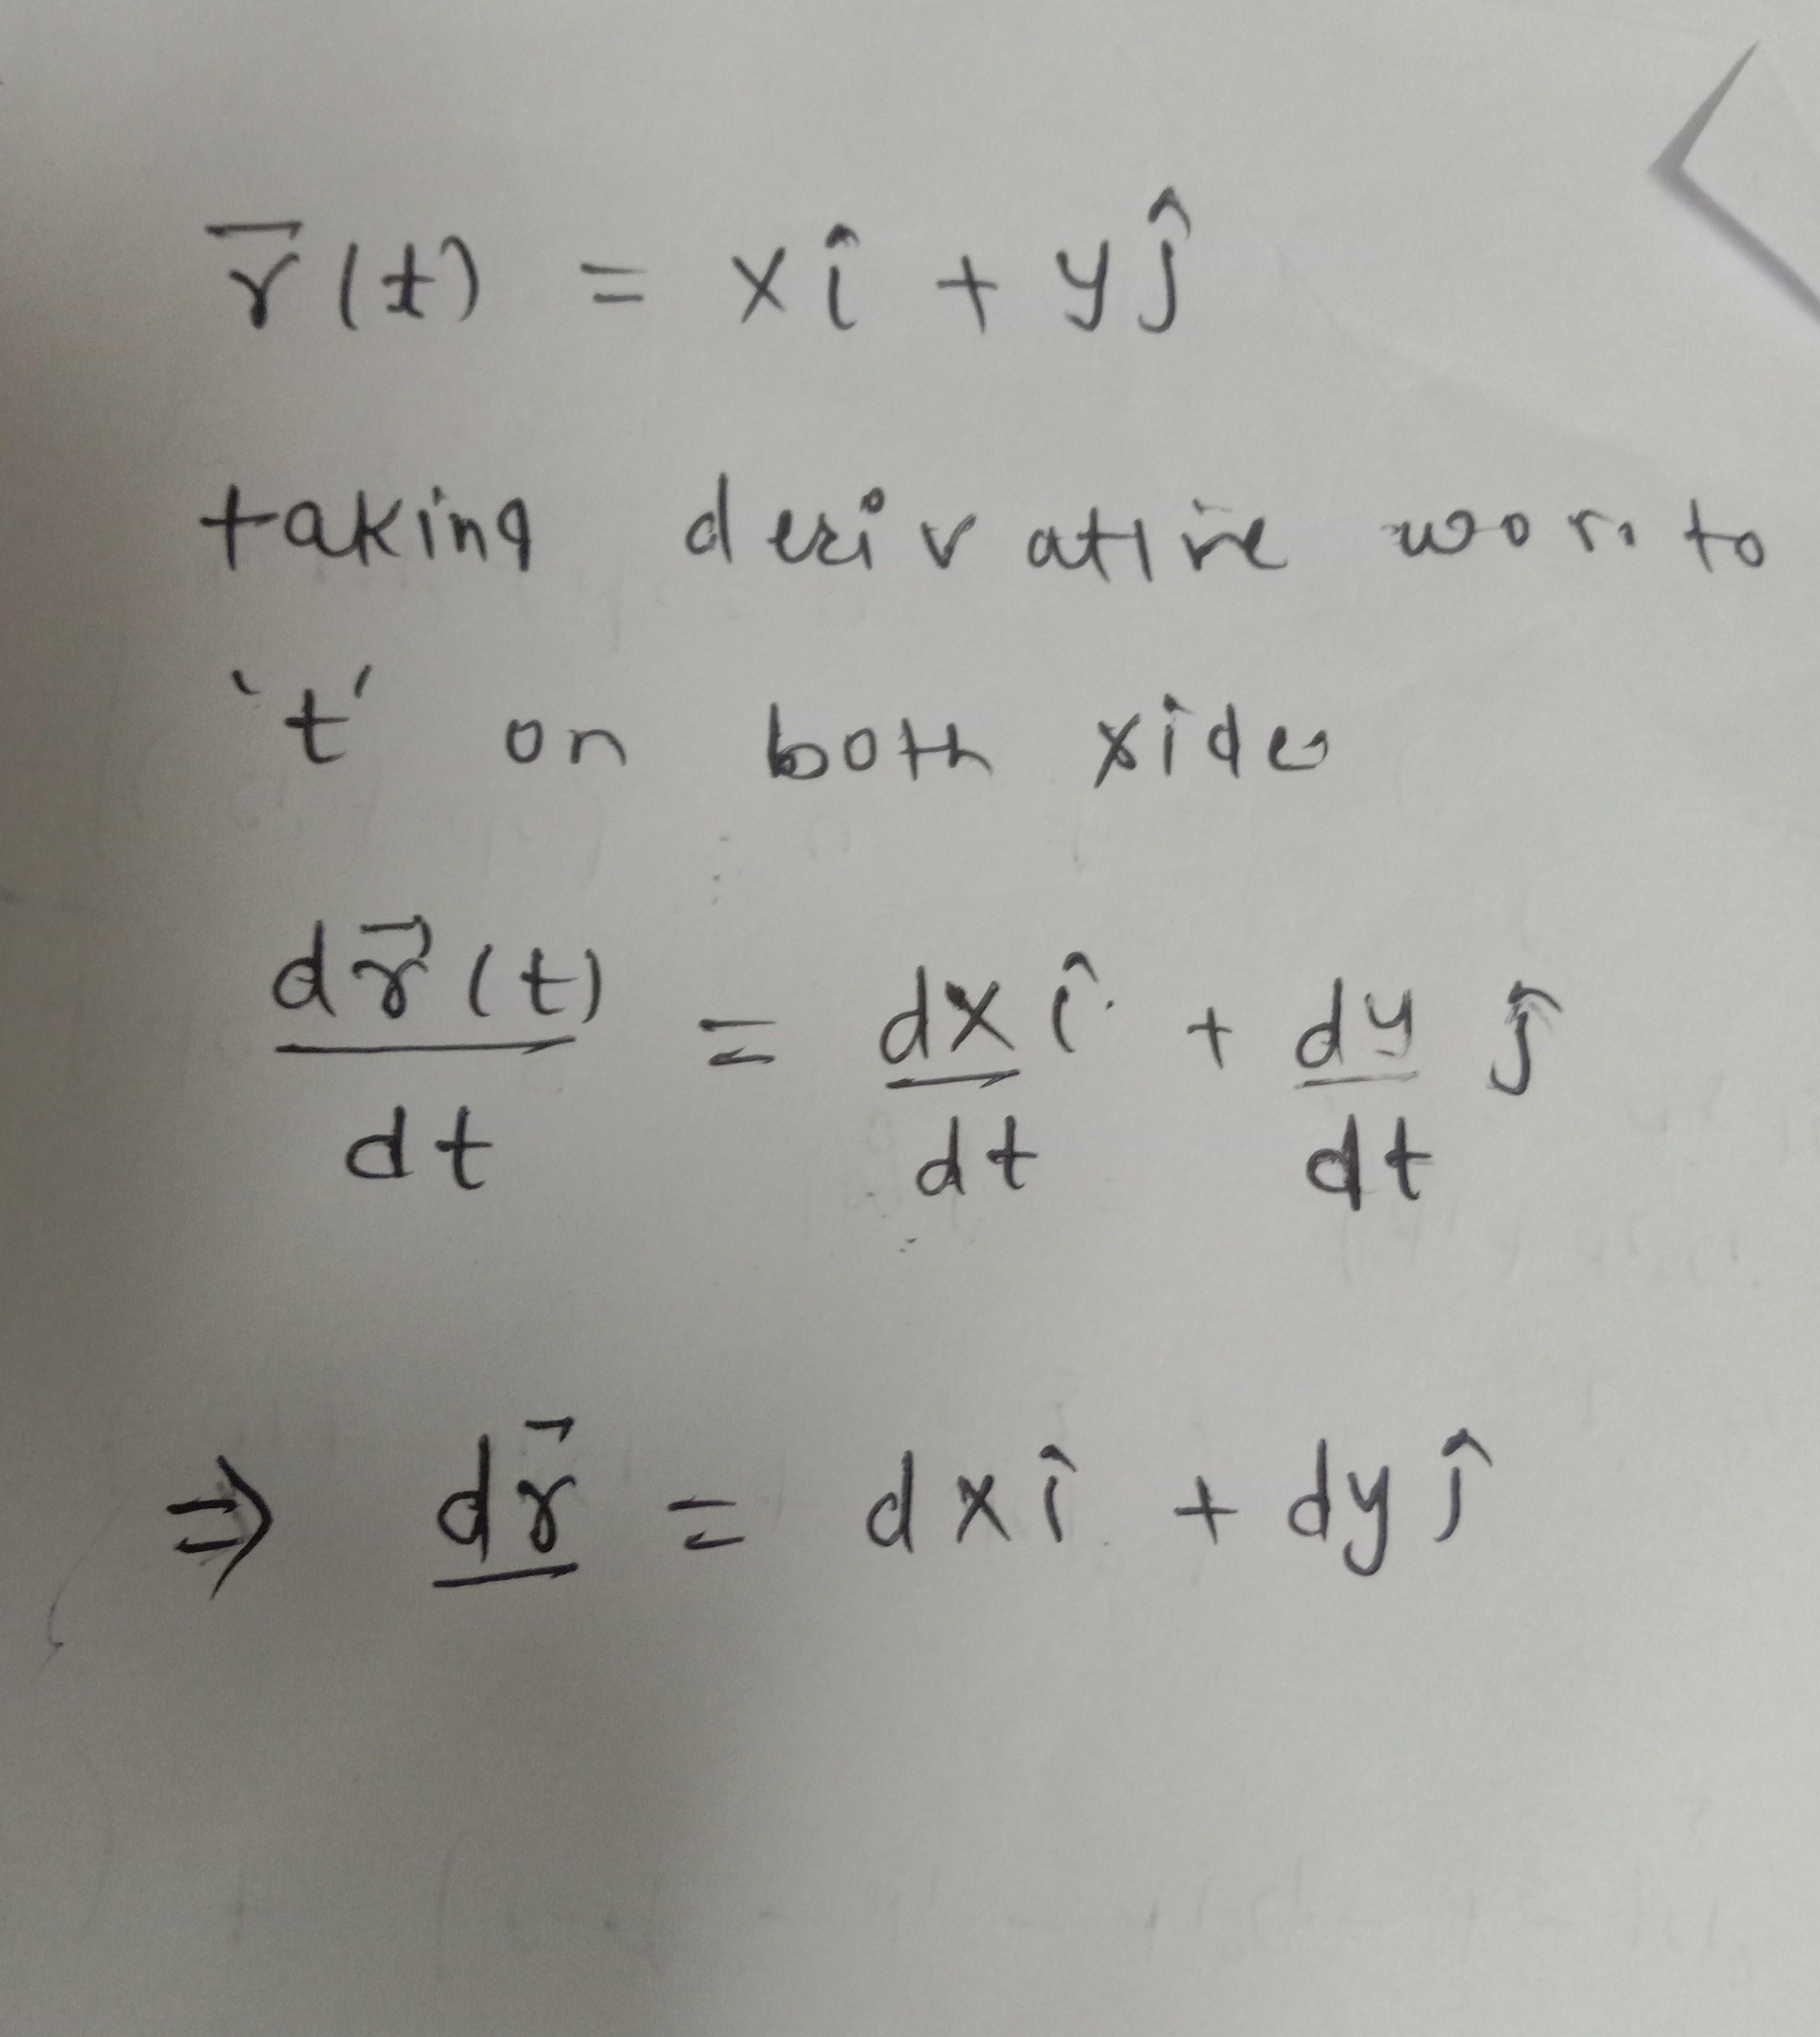 r⃗(t) = xî + yĵ
taking derivative w.r.to
't' on both sides
dr⃗(t)/dt = dx/dt î + dy/dt ĵ
⇒ dr⃗ = dxî + dyĵ